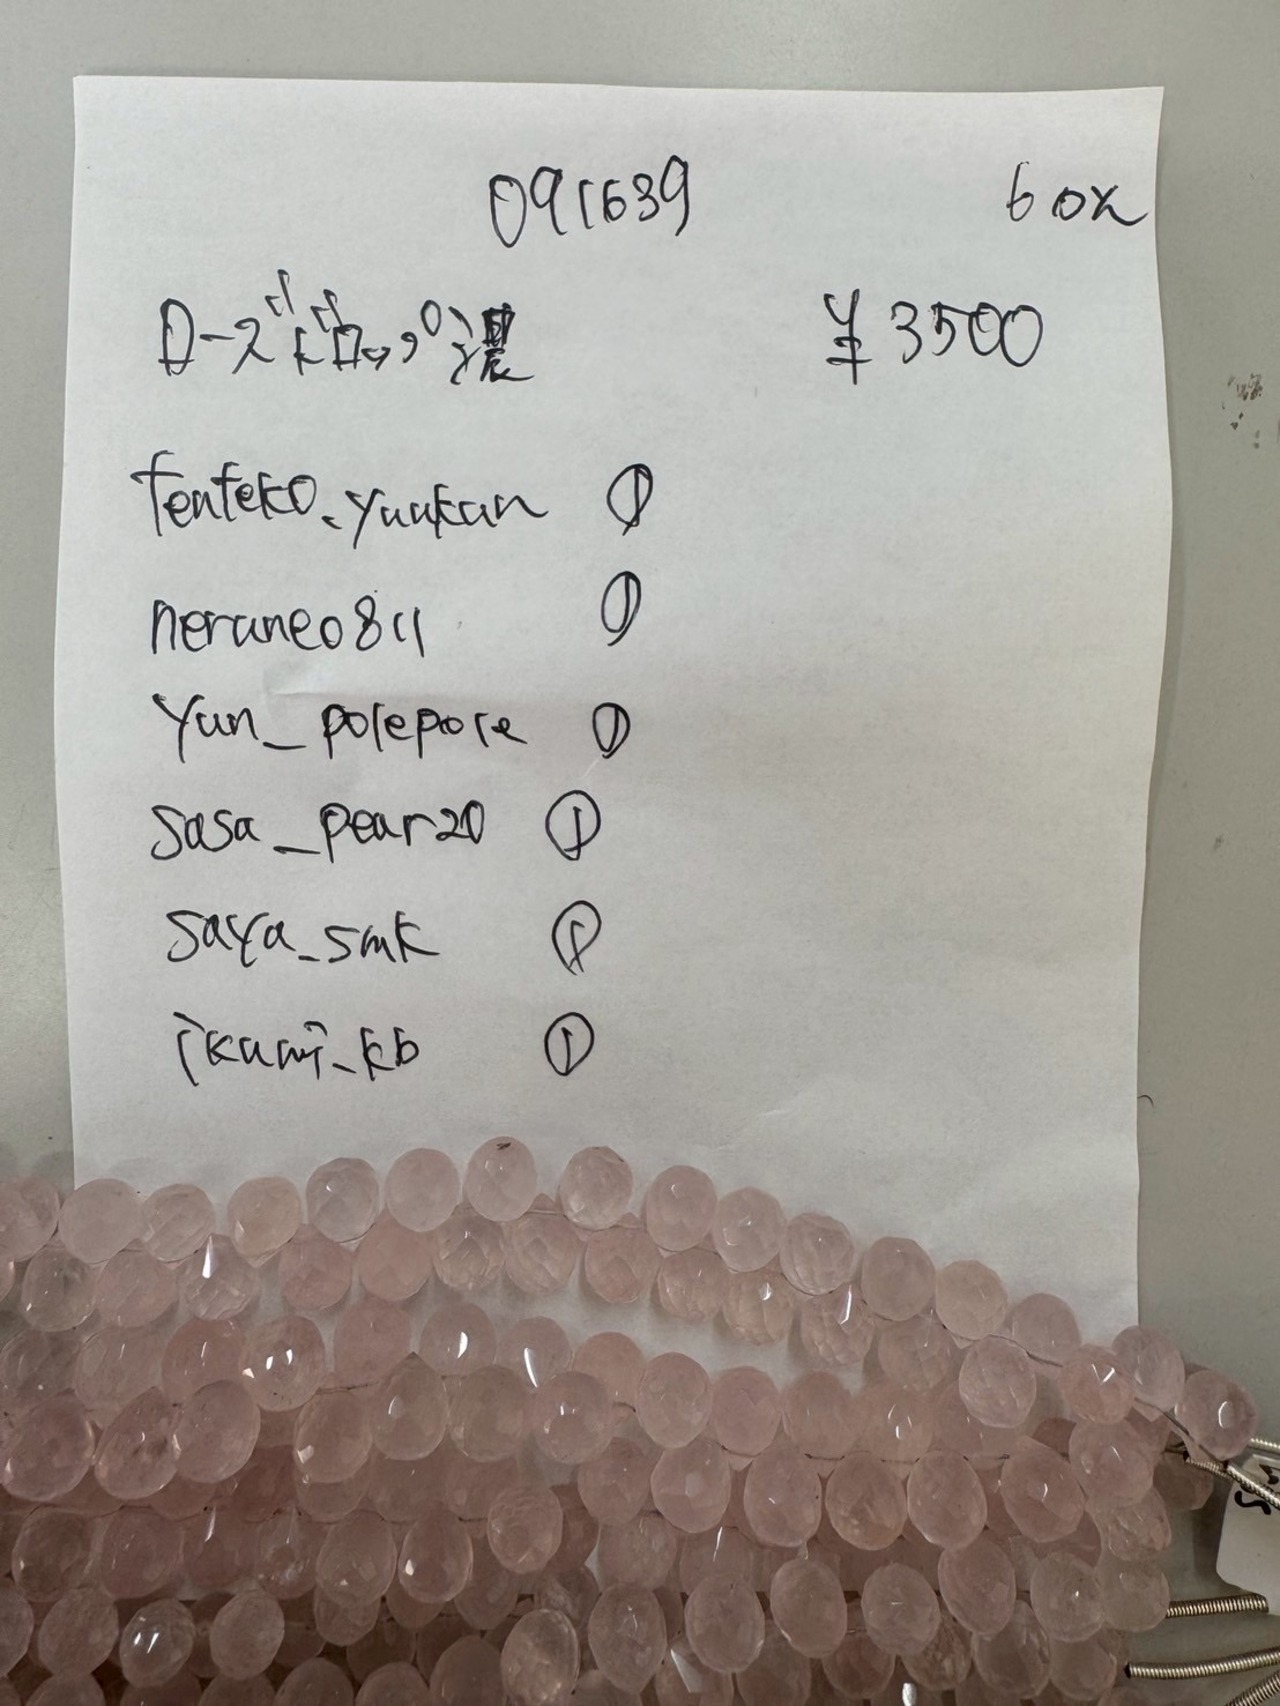 091639 60%
ローズドロップ濃 ¥3500
tenteko.yuukan ①
neruneo811 ①
yun_polepole ①
sasa_pear20 ①
saya_smk ①
ikumi_kb ①